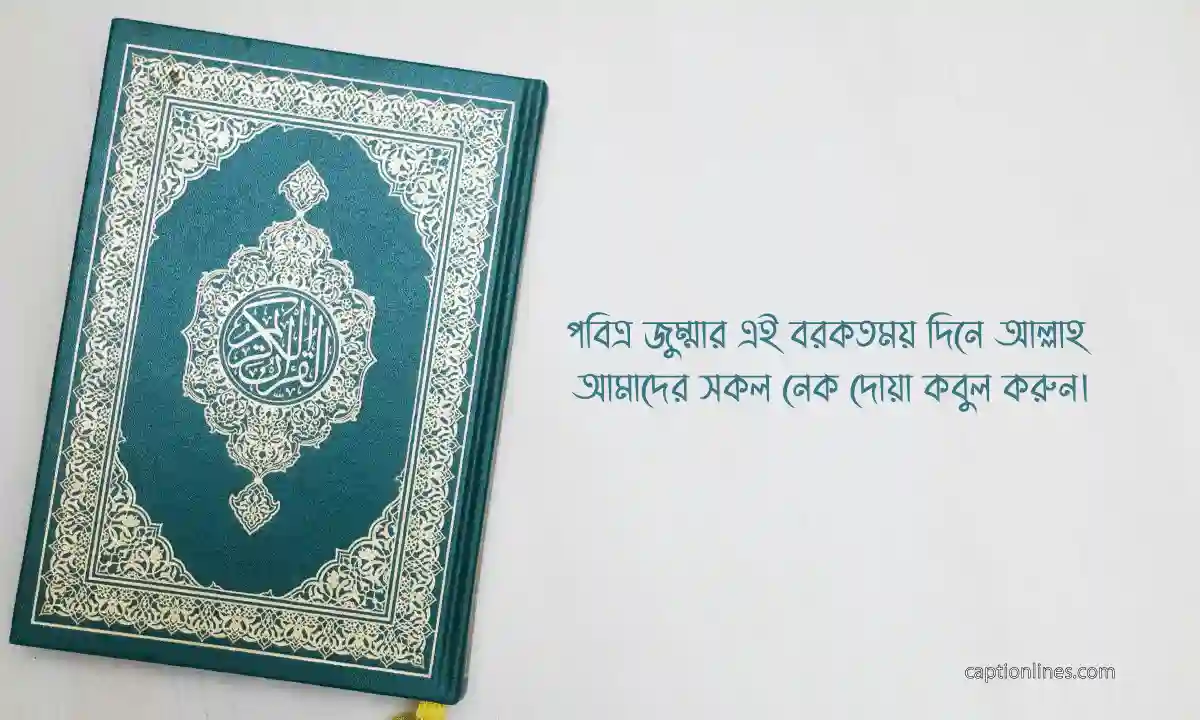 القرآن الكريم
পবিত্র জুম্মার এই বরকতময় দিনে আল্লাহ
আমাদের সকল নেক দোয়া কবুল করুন।
captionlines.com